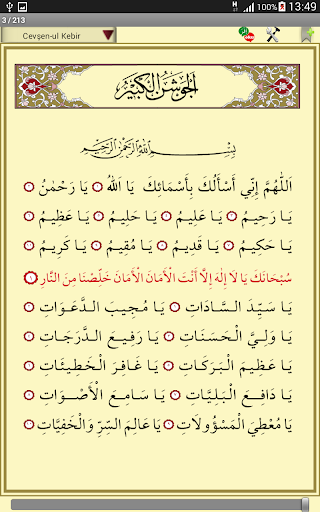 100% 13:49
3 / 213
Cevşen-ul Kebir
اَلْجَوْشَنُ الْكَبِيرُ
بِسْمِ اللهِ الرَّحْمٰنِ الرَّحِيمِ
اَللّٰهُمَّ إِنِّي أَسْأَلُكَ بِأَسْمَائِكَ يَا اَللهُ يَا رَحْمٰنُ
يَا رَحِيمُ يَا عَلِيمُ يَا حَلِيمُ يَا عَظِيمُ
يَا حَكِيمُ يَا قَدِيمُ يَا مُقِيمُ يَا كَرِيمُ
سُبْحَانَكَ يَا لَا إِلٰهَ إِلَّا أَنْتَ الْأَمَانَ الْأَمَانَ خَلِّصْنَا مِنَ النَّارِ
يَا سَيِّدَ السَّادَاتِ يَا مُجِيبَ الدَّعَوَاتِ
يَا وَلِيَّ الْحَسَنَاتِ يَا رَفِيعَ الدَّرَجَاتِ
يَا عَظِيمَ الْبَرَكَاتِ يَا غَافِرَ الْخَطِيئَاتِ
يَا دَافِعَ الْبَلِيَّاتِ يَا سَامِعَ الْأَصْوَاتِ
يَا مُعْطِيَ الْمَسْؤُولَاتِ يَا عَالِمَ السِّرِّ وَالْخَفِيَّاتِ